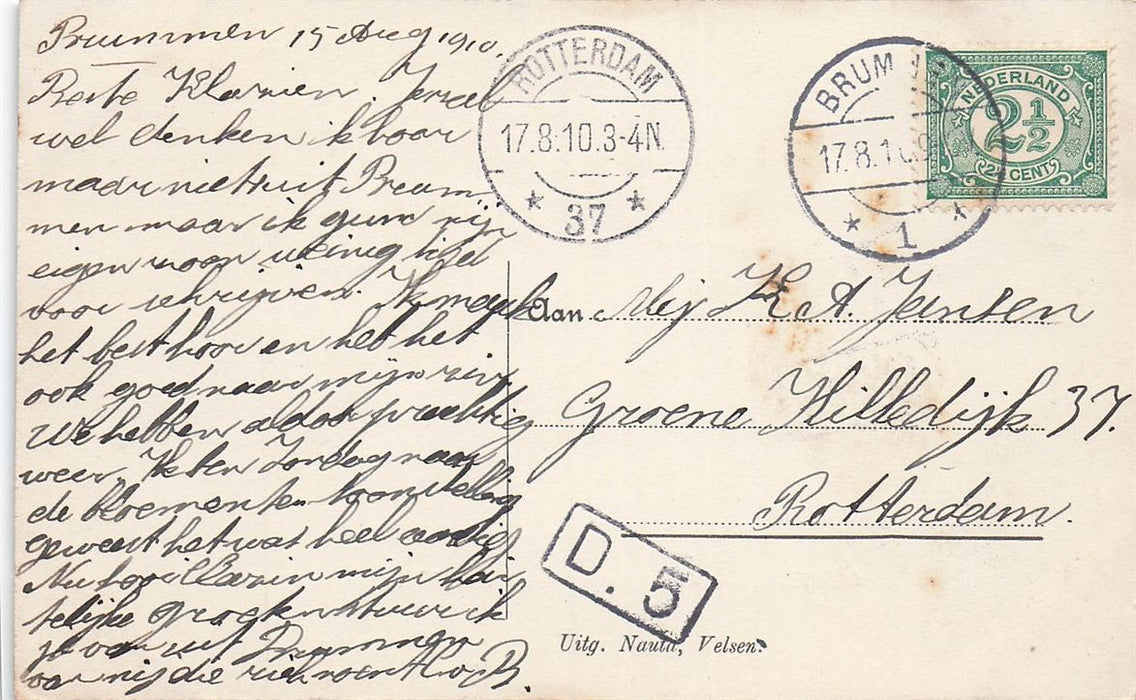 Brummen 15 Aug 1910.
Beste Klasien. Je zal
wel denken ik hoor
maar niets uit Brum
men maar ik gun mij
eigen maar weinig tijd
voor schrijven. Ik maak
het best hoor en heb het
ook goed naar mijn zin
We hebben aldoor prachtig
weer. Ik ben Zondag naar
de bloementen toonstelling
geweest het was heel aardig
Nu Klasien mijn har
telijke groeten stuur ik
je van uit Brummen
van mij die zich noemt B.
ROTTERDAM
17.8.10.3-4N.
37
BRUM
17.8.1
1
NEDERLAND
2½
2½ CENT
Aan Mej K. A. Jansen
Groene Hilledijk 37.
Rotterdam.
D. 5
Uitg. Nauta, Velsen.